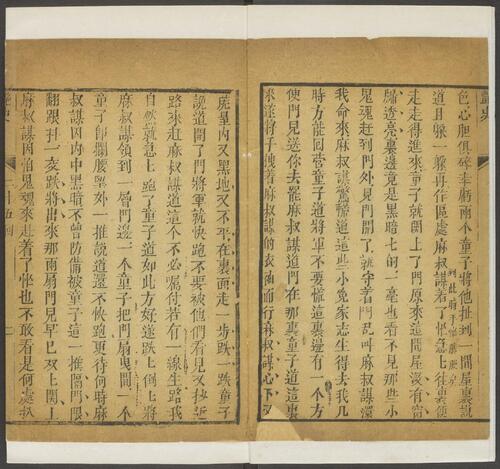 色心胆俱碎幸虧兩个童子將他扯到一間屋裏說
道且躲一躲再作區處麻叔謀着了忙急上往裏便
走走得進來童子就開上了門原來這間屋沒有窗
牖透亮裏邊竟是黑暗七的一毫也看不見那些小
鬼魂赶到門外見門開了就守着門乱叫麻叔謀還
我命來麻叔謀驚慌道這些小冤家志生得去我几
時方能回答童子道將軍不要慌這裏邊有一个方
便門見送你去罷麻叔謀道門在那裏童子道這裏
來遂將手拽着麻叔謀的衣而行麻叔謀心下又
屋里內又黑地又不平在裏面走一步跌一跌童子
說道開了門將軍就快跑不要被他們看見又抄近
路來赶麻叔謀道這个不必囑付若有一線生路我
自然就急上跑了童子道如此方好遂跌上倒上將
麻叔謀領到一層門邊一个童子把門扇曳開一个
童子即攔腰望外一推說道還不快跑更待何時麻
叔謀因內中黑暗不曾防備被童子這一推隔門限
翻跟斗一交跌將出來那兩扇門見早已双上閉上
麻叔謀因怕鬼魂來赶着了忙也不敢看是何處扒
艷史
二十五回